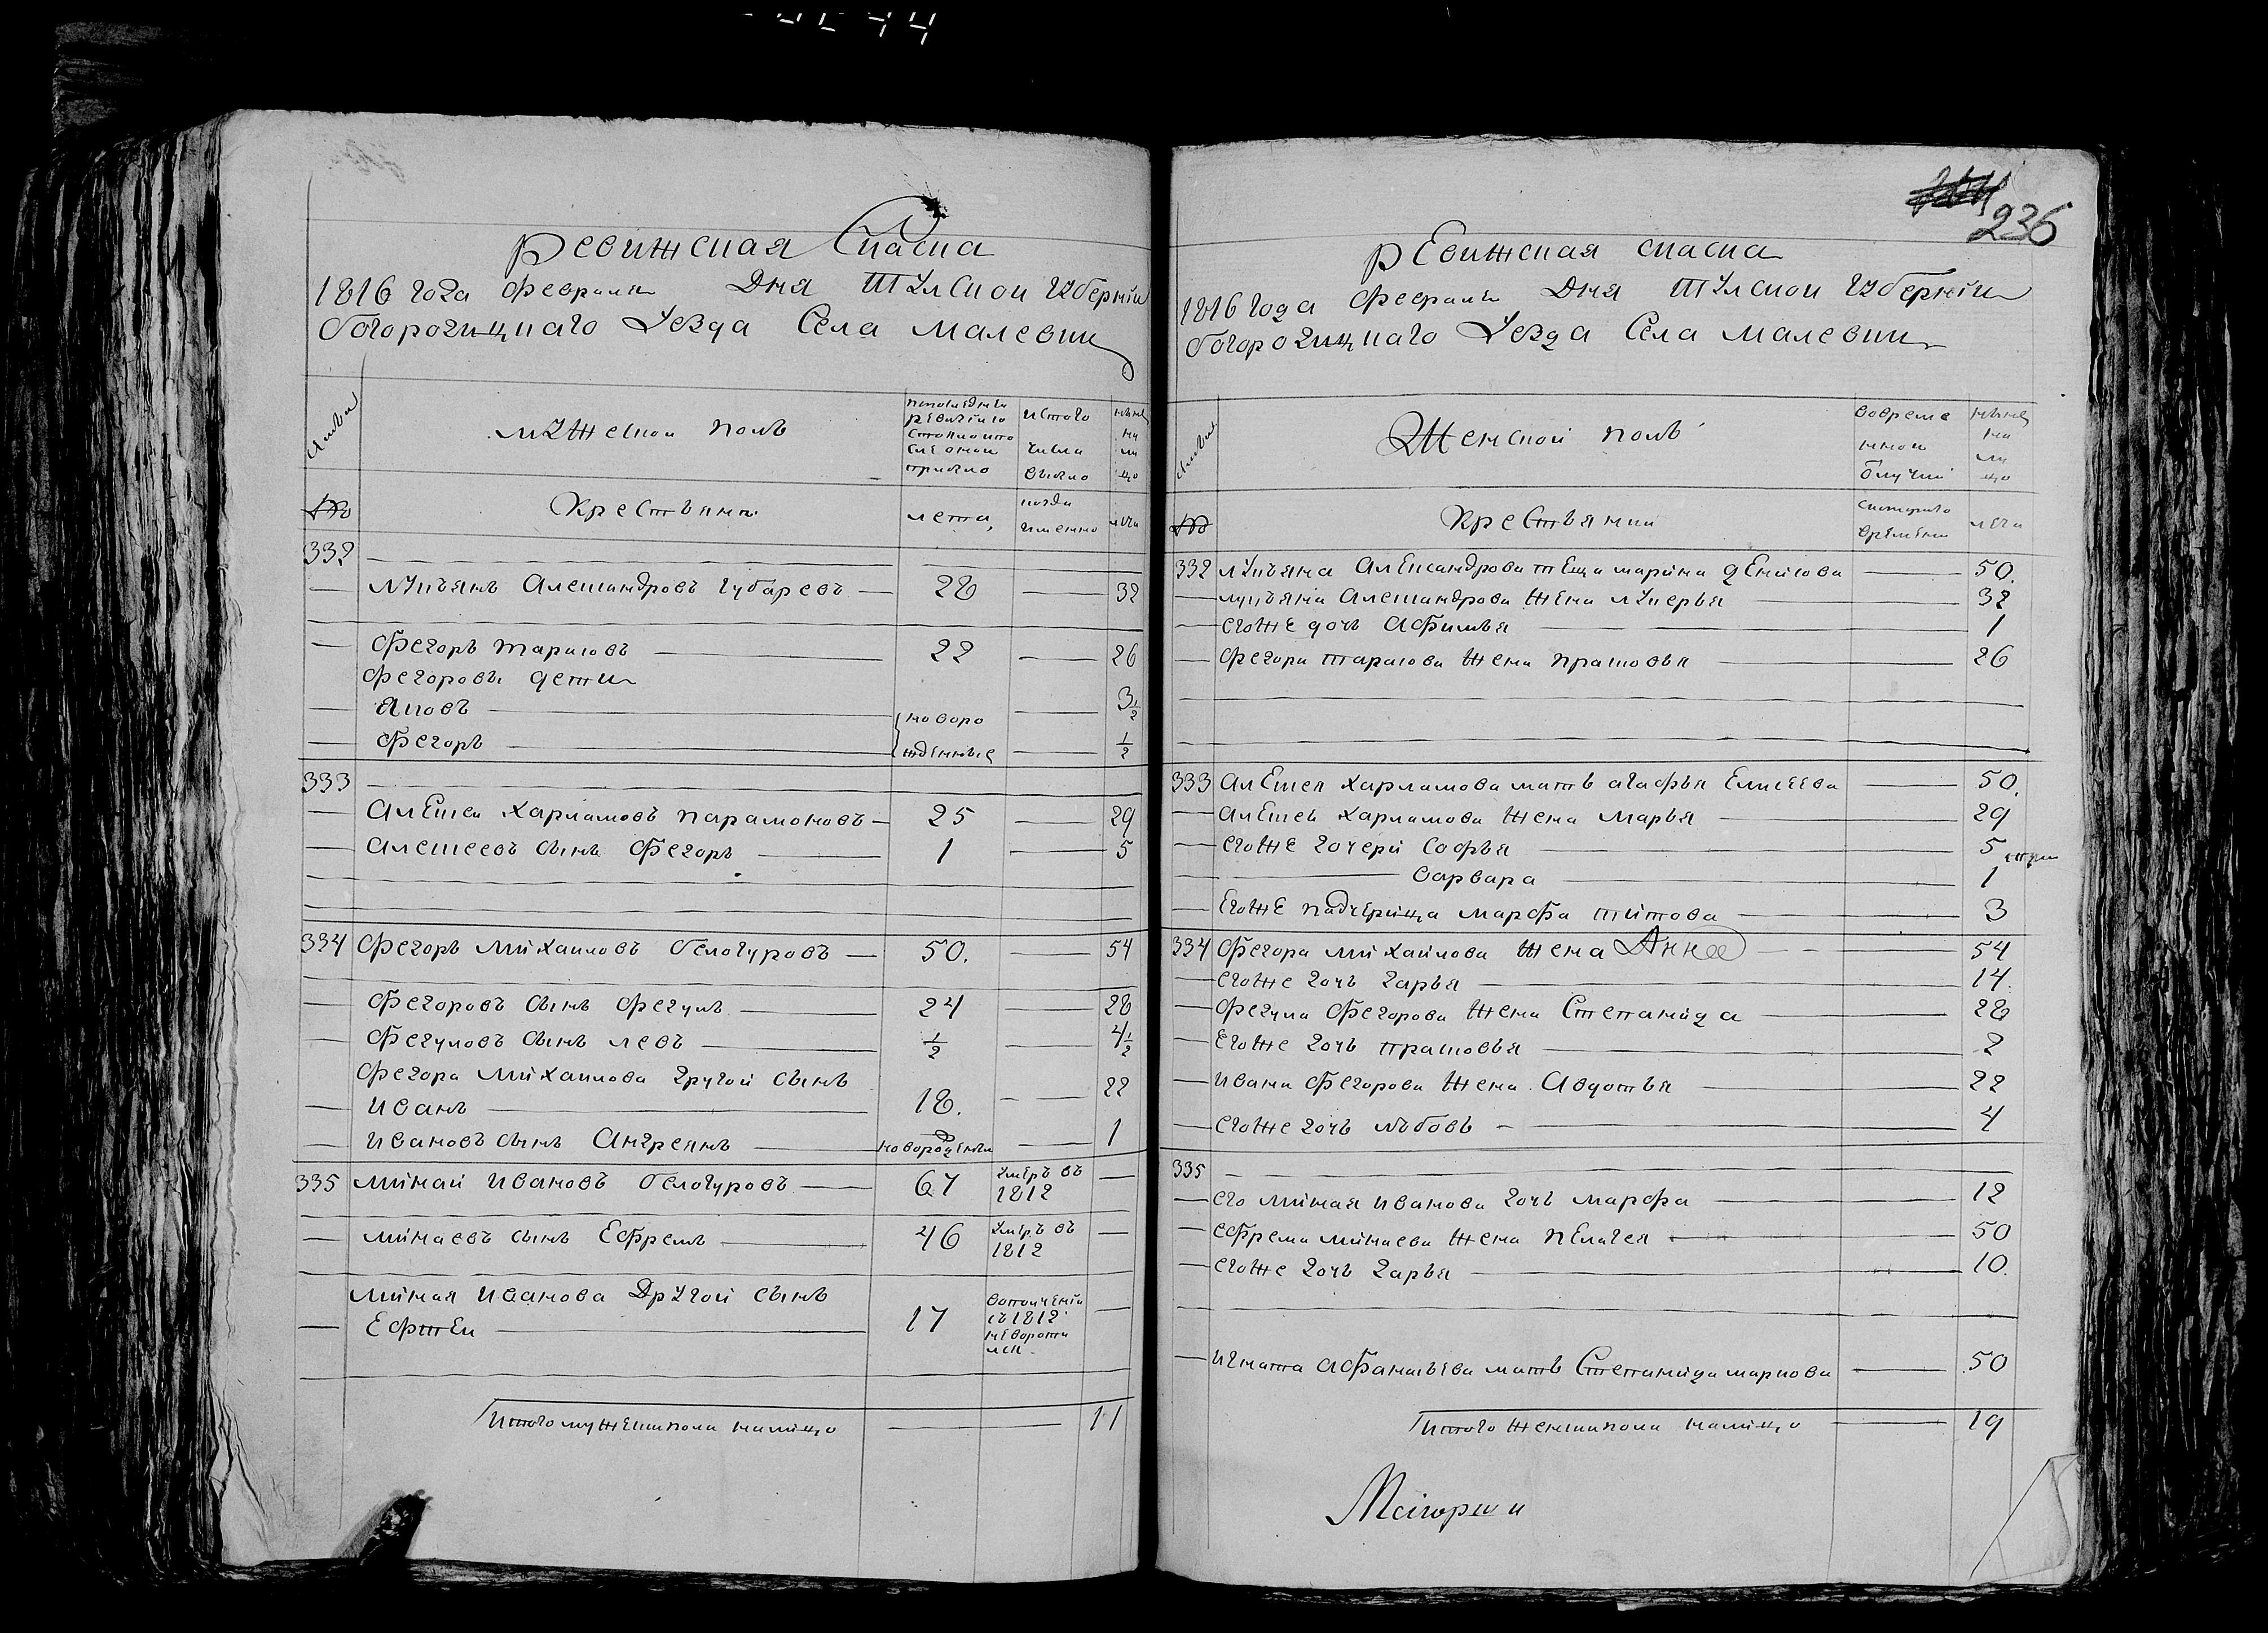 ревижская скаска
1816 года февраля дня тулской губернiи
богородицкаго уезда Села малевки
Семьи
мужескои полъ
попоследнеи ревизiи состояло и после оной прибыло
истого числа выбыло
ныне на лицо
№
Крестьяня
лета
когда именно
лета
332
лукьянъ Александровъ губаревъ 28 32
федоръ тарасовъ 22 26
федоровы дети
яковъ 3½
федоръ ½
новоро
жденные
333
Алексеи харламовъ парамоновъ 25 29
алексеевъ сынъ федоръ 1 5
334 федоръ михаиловъ белогуровъ 50. 54
федоровъ сынъ федулъ 24 28
федуловъ сынъ левъ ½ 4½
федора михаилова другой сынъ
иванъ 18. 22
ивановъ сынъ Андреянъ новорожденъ 1
335 минаи ивановъ белогуровъ 67 умеръ въ 1812
минаевъ сынъ Ефремъ 46 умеръ въ 1812
миная иванова другой сынъ
Ефтеи 17 вополчени съ 1812 неворотился
итого мужескапола налицо 11
236
ревижская скаска
1816 года февраля дня тулской губернiи
богородицкаго уезда Села малевки
Семьи
Женской полъ
вовременной отлучки
ныне на лицо
№
Крестьянки
скотораго времени
лета
332 лукьяна Александрова теща марина денисова 50.
лукьяна Александрова жена лукерья 32
егоже дочь Афимья 1
федора тарасова жена прасковья 26
333 Алексея харламова мать агафья Елисеева 50.
алексея харламова жена марья 29
егоже дочери Софья 5
варвара 1
Егоже падчерица марфа титова 3
334 федора михаилова жена Анна 54
егоже дочь дарья 14
федула федорова жена Степанида 28
егоже дочь прасковья 2
ивана федорова жена Авдотья 22
егоже дочь любовь 4
335
его миная иванова дочь марфа 12
ефрема минаева жена пелагея 50
егоже дочь дарья 10.
игната афанасьева мать Степанида маркова 50
итого женскапола налицо 19